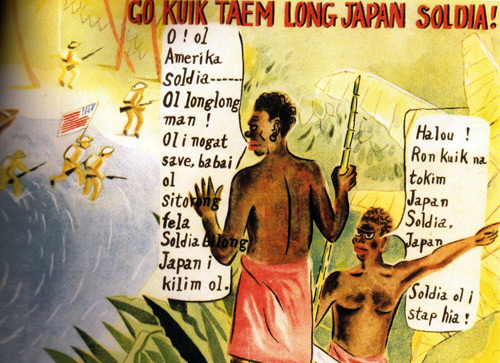 GO KUIK TAEM LONG JAPAN SOLDIA!
O! ol
Amerika
soldia------
Ol longlong
man !
Ol i nogat
save, babai
ol
sitorong
fela
Soldia bilong
Japan i
kilim ol.
Halou !
Ron kuik na
tokim
Japan
Soldia,
Japan
Soldia ol i
stap hia !